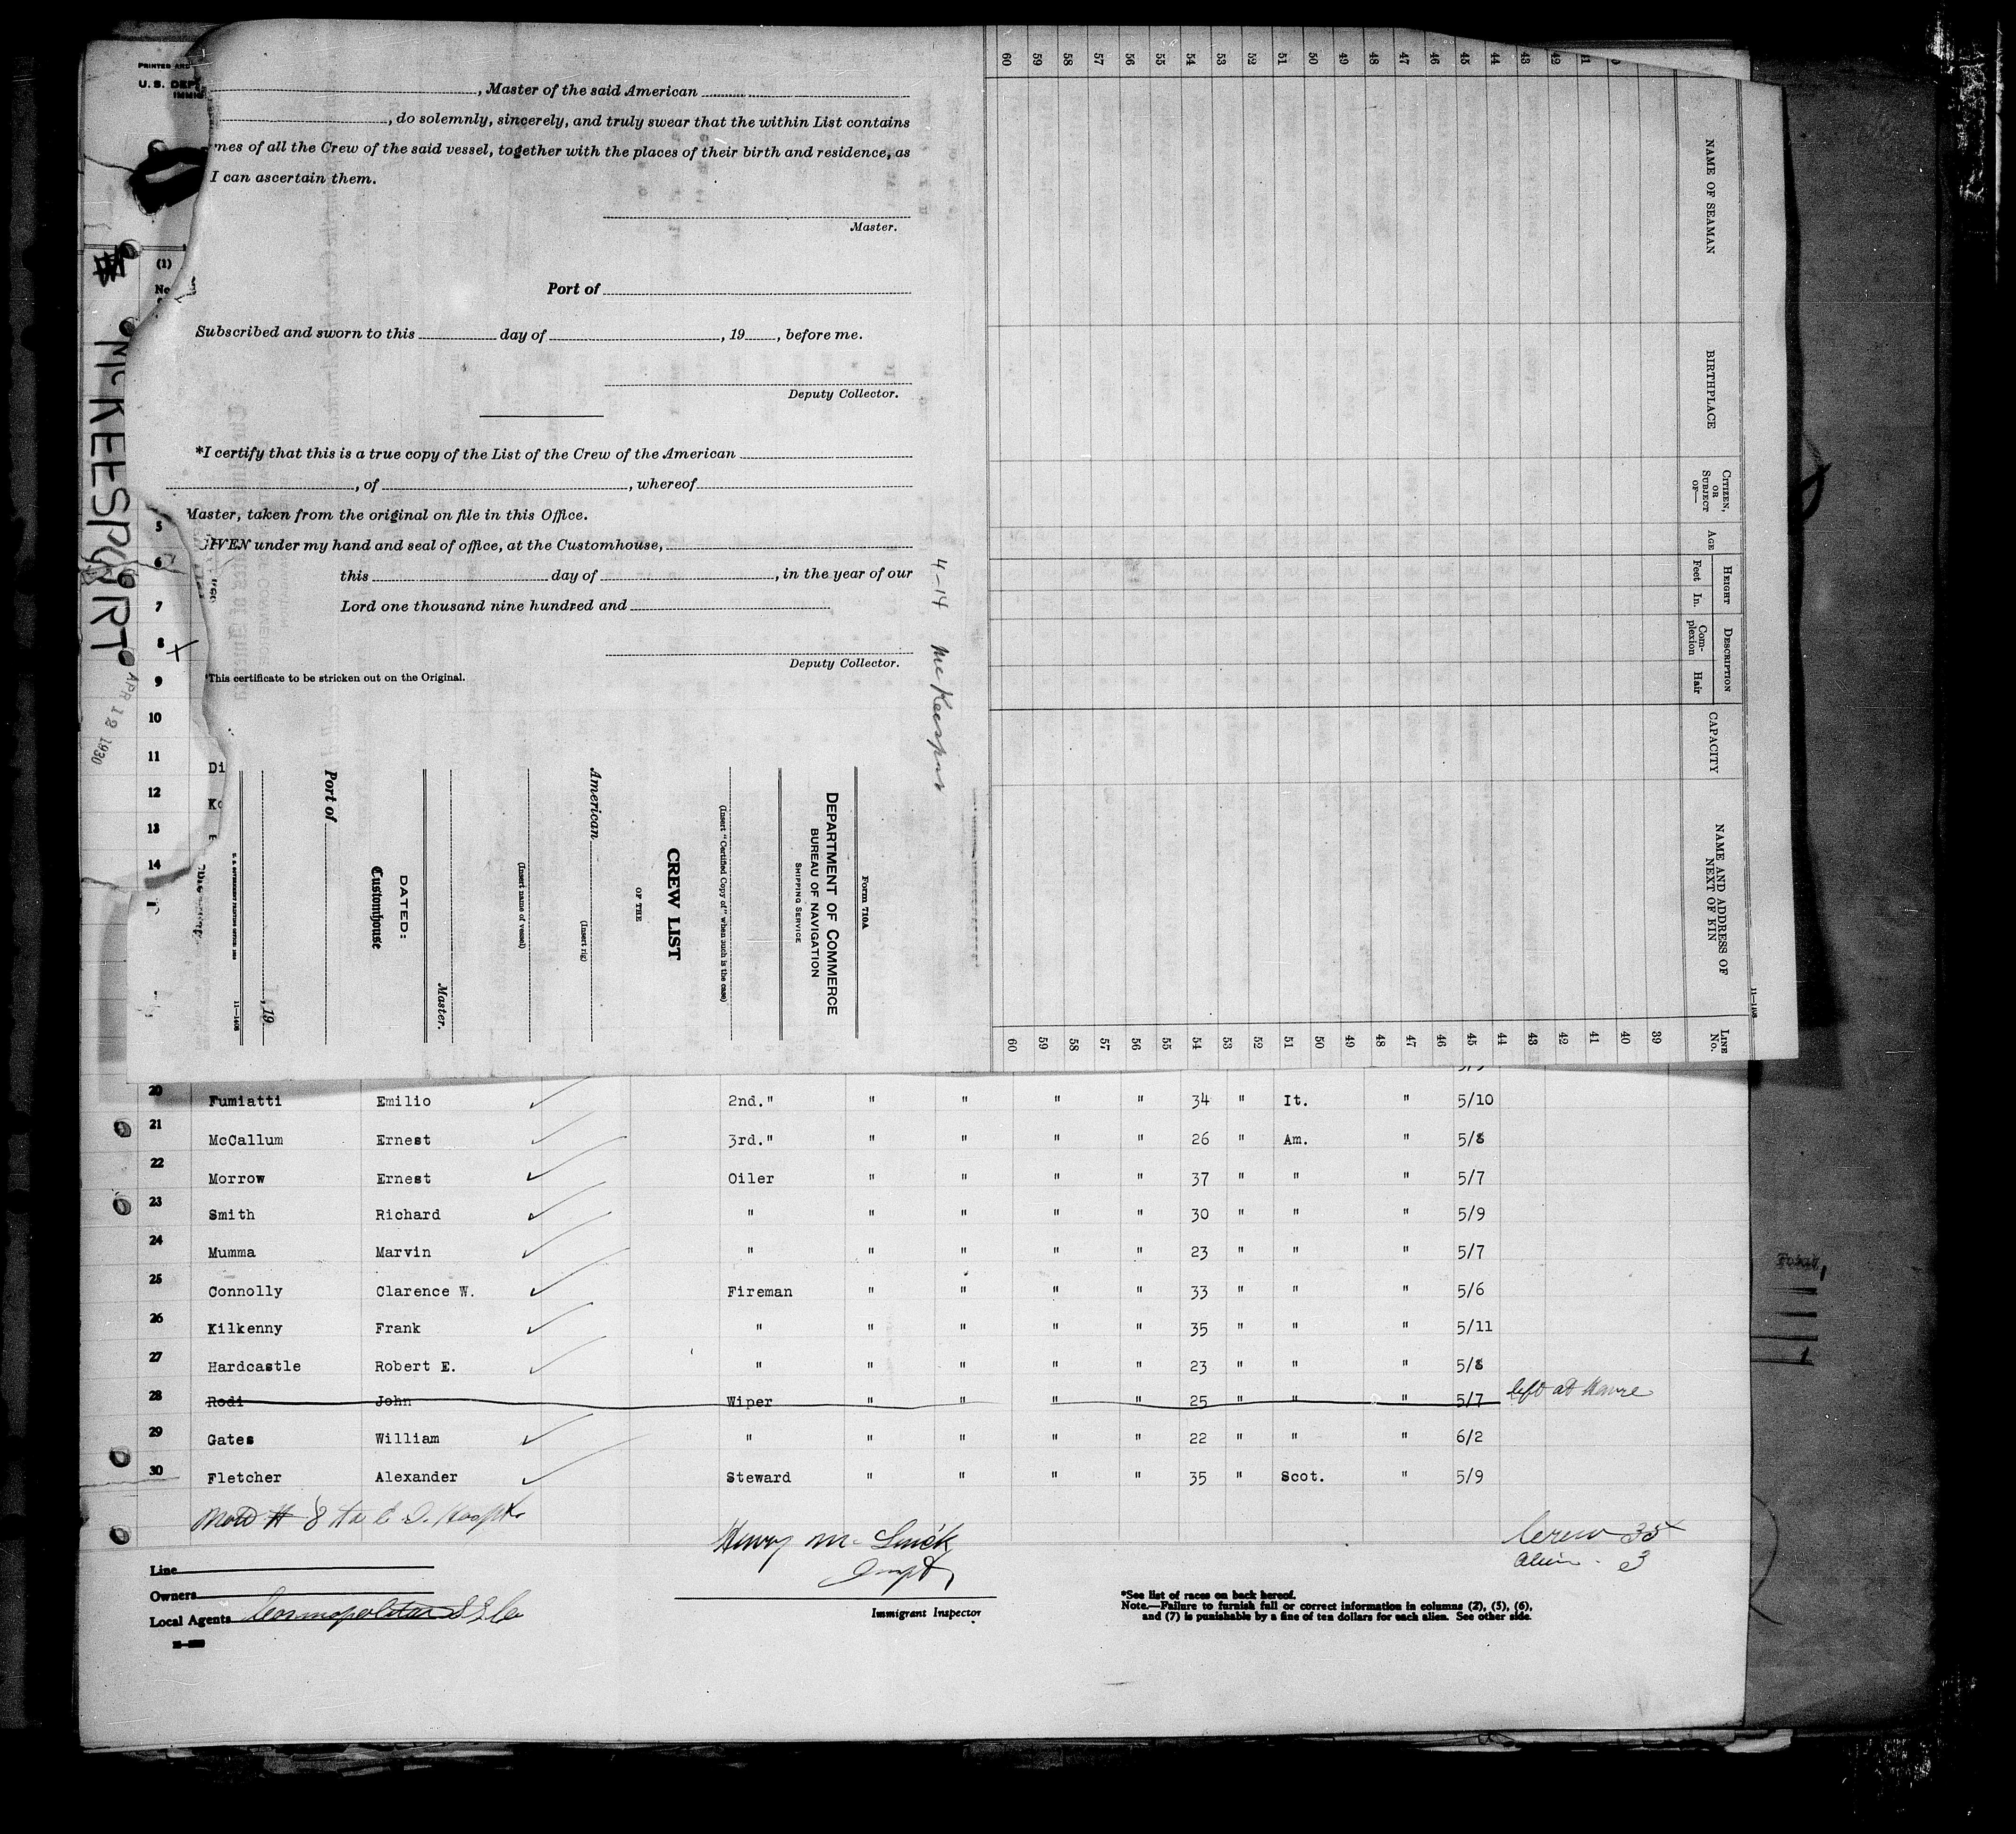 PRINTED AND
U. S. DEP
IMMIG
(1)
McKEESPORT
APR 12 1930
, Master of the said American
, do solemnly, sincerely, and truly swear that the within List contains
mes of all the Crew of the said vessel, together with the places of their birth and residence, as
I can ascertain them.
Master.
Port of
Subscribed and sworn to this day of , 19 , before me.
Deputy Collector.
*I certify that this is a true copy of the List of the Crew of the American
, of , whereof
Master, taken from the original on file in this Office.
GIVEN under my hand and seal of office, at the Customhouse,
this day of , in the year of our
Lord one thousand nine hundred and
Deputy Collector.
*This certificate to be stricken out on the Original.
4-14 McKeesport
5
6
7
8 X
9
10
11 Di
12 Ko
13
14
Form 710A
DEPARTMENT OF COMMERCE
BUREAU OF NAVIGATION
SHIPPING SERVICE
(Insert "Certified Copy of" when such is the case)
CREW LIST
OF THE
American
(Insert rig)
(Insert name of vessel)
Master.
DATED:
Customhouse
Port of
, 19
11—1408
60 59 58 57 56 55 54 53 52 51 50 49 48 47 46 45 44 43 42 41
NAME OF SEAMAN
BIRTHPLACE
CITIZEN, OR SUBJECT OF—
AGE
HEIGHT
Feet In.
DESCRIPTION
Complexion Hair
CAPACITY
NAME AND ADDRESS OF NEXT OF KIN
LINE No.
60 59 58 57 56 55 54 53 52 51 50 49 48 47 46 45 44 43 42 41 40 39
11—1408
20 Fumiatti Emilio 2nd." " " " " 34 " It. " 5/10
21 McCallum Ernest 3rd." " " " " 26 " Am. " 5/8
22 Morrow Ernest Oiler " " " " 37 " " " 5/7
23 Smith Richard " " " " " 30 " " " 5/9
24 Mumma Marvin " " " " " 23 " " " 5/7
25 Connolly Clarence W. Fireman " " " " 33 " " " 5/6
26 Kilkenny Frank " " " " " 35 " " " 5/11
27 Hardcastle Robert E. " " " " " 23 " " " 5/8
28 Rodi John Wiper " " " " 25 " " " 5/7 left at Havre
29 Gates William " " " " " 22 " " " 6/2
30 Fletcher Alexander Steward " " " " 35 " Scot. " 5/9
Crew 35
Alien - 3
Line
Owners
Local Agents Cosmopolitan S S Co
Immigrant Inspector
*See list of races on back hereof.
Note.—Failure to furnish full or correct information in columns (2), (5), (6),
and (7) is punishable by a fine of ten dollars for each alien. See other side.